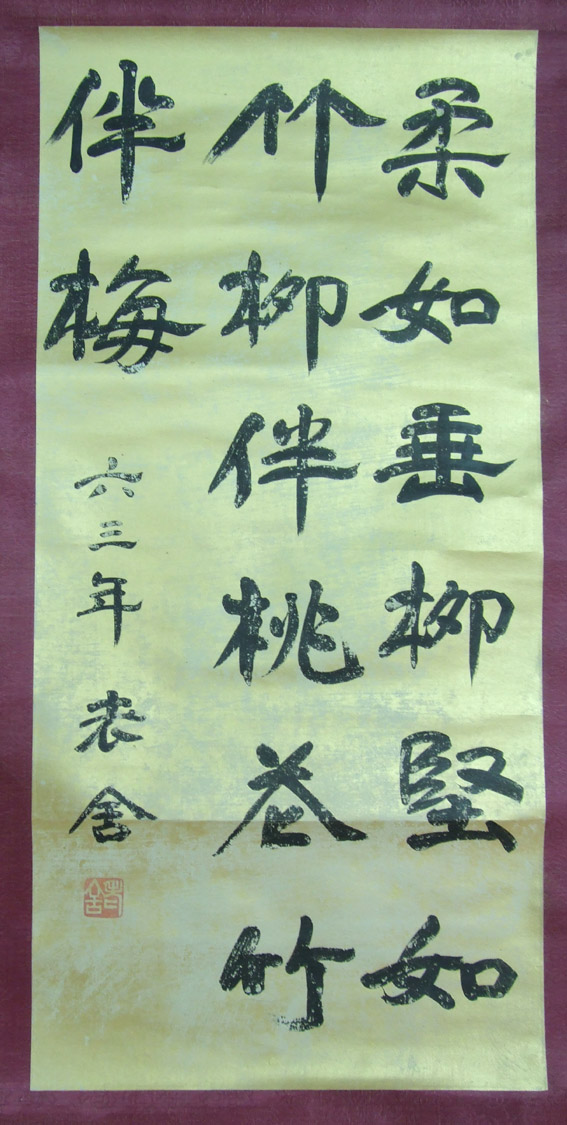 柔如垂柳堅如
竹柳伴桃花竹
伴梅
六三年老舍
老舍